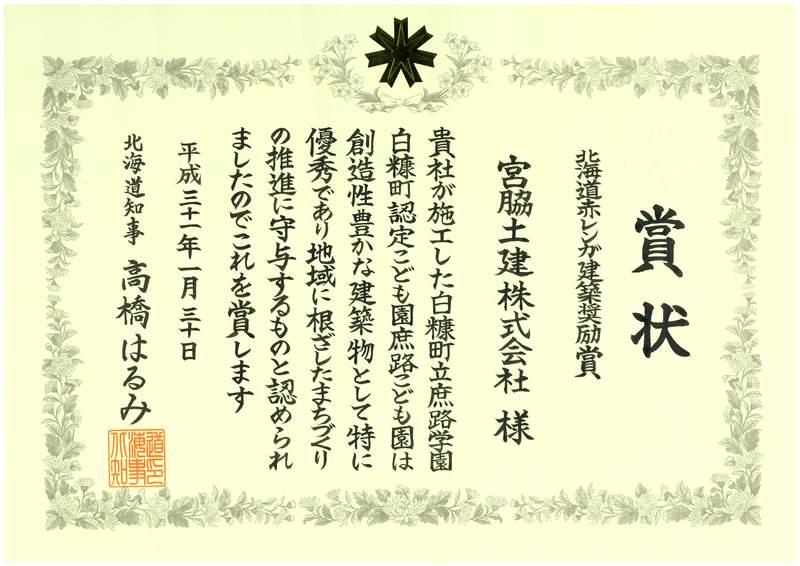 賞状
北海道赤レンガ建築奨励賞
宮脇土建株式会社 様
貴社が施工した白糠町立庶路学園
白糠町認定こども園庶路こども園は
創造性豊かな建築物として特に
優秀であり地域に根ざしたまちづくり
の推進に守与するものと認められ
ましたのでこれを賞します
平成三十一年一月三十日
北海道知事 高橋はるみ